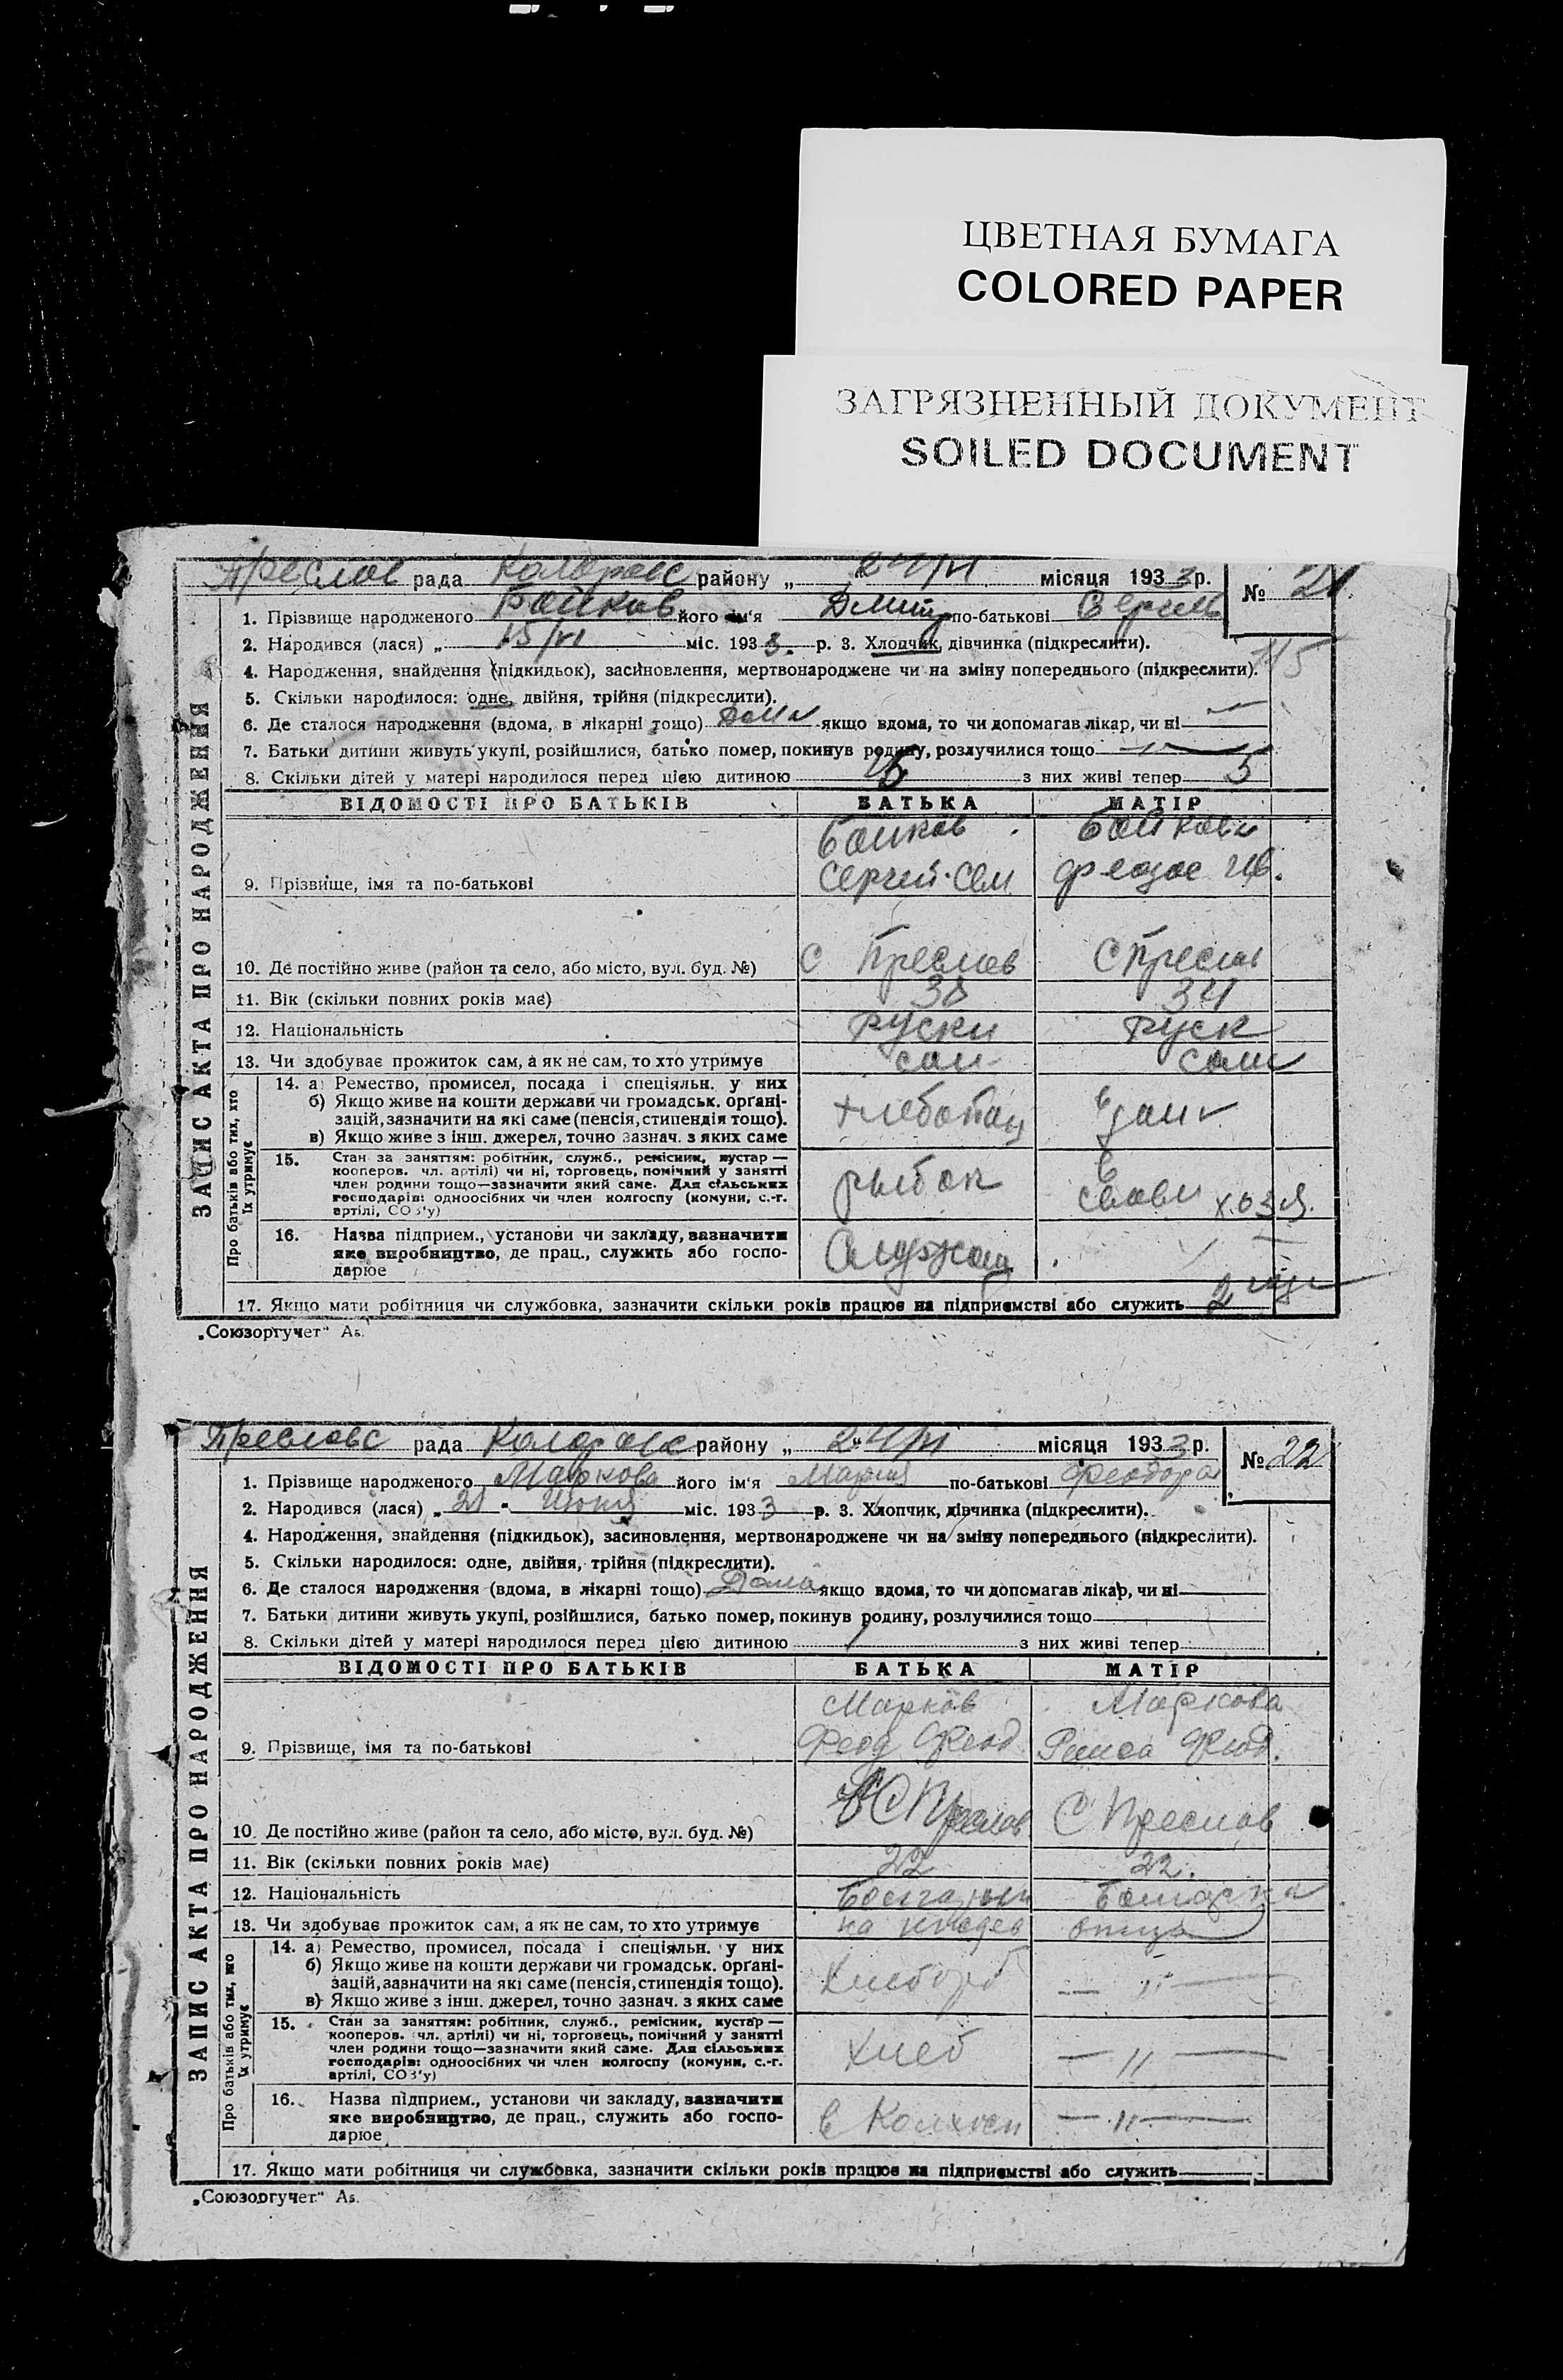 ЦВЕТНАЯ БУМАГА
COLORED PAPER
ЗАГРЯЗНЕННЫЙ ДОКУМЕНТ
SOILED DOCUMENT
Преслов рада Коларовс району „ 24/VI місяця 1933 р. № 21
1. Прізвище народженого Бойков його ім‘я Дмитр по-батькові Сергей
2. Народився (лася) „ 15/VI міс. 1933. р. 3. Хлопчик, дівчинка (підкреслити).
4. Народження, знайдення (підкидьок), засиновлення, мертвонароджене чи на зміну попереднього (підкреслити).
5. Скільки народилося: одне, двійня, трійня (підкреслити).
6. Де сталося народження (вдома, в лікарні тощо) Дома якщо вдома, то чи допомагав лікар, чи ні
7. Батьки дитини живуть укупі, розійшлися, батько помер, покинув родину, розлучилися тощо
8. Скільки дітей у матері народилося перед цією дитиною з них живі тепер 5
ВІДОМОСТІ ПРО БАТЬКІВ БАТЬКА МАТІР
Бойков Бойкови
9. Прізвище, імя та по-батькові Сергей Сем Ив.
10. Де постійно живе (район та село, або місто, вул. буд. №) С Преслов С Преслов
11. Вік (скільки повних років має) 38 34
12. Національність Руски Руск
13. Чи здобуває прожиток сам, а як не сам, то хто утримує сам сами
14. а) Ремество, промисел, посада і спеціяльн. у них
б) Якщо живе на кошти держави чи громадськ. орґані-
зацій, зазначити на які саме (пенсія, стипендія тощо).
в) Якщо живе з інш. джерел, точно зазнач. з яких саме
хлебопаш
15. Стан за заняттям: робітник, служб., ремісник, кустар —
кооперов. чл. артілі) чи ні, торговець, помічний у занятті
член родини тощо—зазначити який саме. Для сільських
господарів: одноосібних чи член колгоспу (комуни, с.-г.
артілі, СОЗ'у)
рыбак в своем хозя.
16. Назва підприєм., установи чи закладу, зазначити
яке виробництво, де прац., служить або госпо-
дарює
Служащ
17. Якщо мати робітниця чи службовка, зазначити скільки років працює на підприємстві або служить 2
„Союзоргучет“ А₅.
ЗАПИС АКТА ПРО НАРОДЖЕННЯ
Про батьків або тих, хто їх утримує
Пресловс рада Коларовс району „ 24/VI місяця 1933 р. № 22
1. Прізвище народженого Маркова його ім‘я Мария по-батькові Феодора
2. Народився (лася) „ 21 " Июня міс. 1933 р. 3. Хлопчик, дівчинка (підкреслити).
4. Народження, знайдення (підкидьок), засиновлення, мертвонароджене чи на зміну попереднього (підкреслити).
5. Скільки народилося: одне, двійня, трійня (підкреслити).
6. Де сталося народження (вдома, в лікарні тощо) Дома якщо вдома, то чи допомагав лікар, чи ні
7. Батьки дитини живуть укупі, розійшлися, батько помер, покинув родину, розлучилися тощо
8. Скільки дітей у матері народилося перед цією дитиною з них живі тепер
ВІДОМОСТІ ПРО БАТЬКІВ БАТЬКА МАТІР
Марков Маркова
9. Прізвище, імя та по-батькові Феод Феод. Раиса Феод.
10. Де постійно живе (район та село, або місто, вул. буд. №) С Преслов С Преслов
11. Вік (скільки повних років має) 22 22.
12. Національність Болгарин Болгарка
13. Чи здобуває прожиток сам, а як не сам, то хто утримує на отца
14. а) Ремество, промисел, посада і спеціяльн. у них
б) Якщо живе на кошти держави чи громадськ. орґані-
зацій, зазначити на які саме (пенсія, стипендія тощо).
в) Якщо живе з інш. джерел, точно зазнач. з яких саме
Хлебороб — " —
15. Стан за заняттям: робітник, служб., ремісник, кустар —
кооперов. чл. артілі) чи ні, торговець, помічний у занятті
член родини тощо—зазначити який саме. Для сільських
господарів: одноосібних чи член колгоспу (комуни, с.-г.
артілі, СОЗ'у)
Хлеб — " —
16. Назва підприєм., установи чи закладу, зазначити
яке виробництво, де прац., служить або госпо-
дарює
в Колхози — " —
17. Якщо мати робітниця чи службовка, зазначити скільки років працює на підприємстві або служить
„Союзоргучет“ А₅.
ЗАПИС АКТА ПРО НАРОДЖЕННЯ
Про батьків або тих, що їх утримує